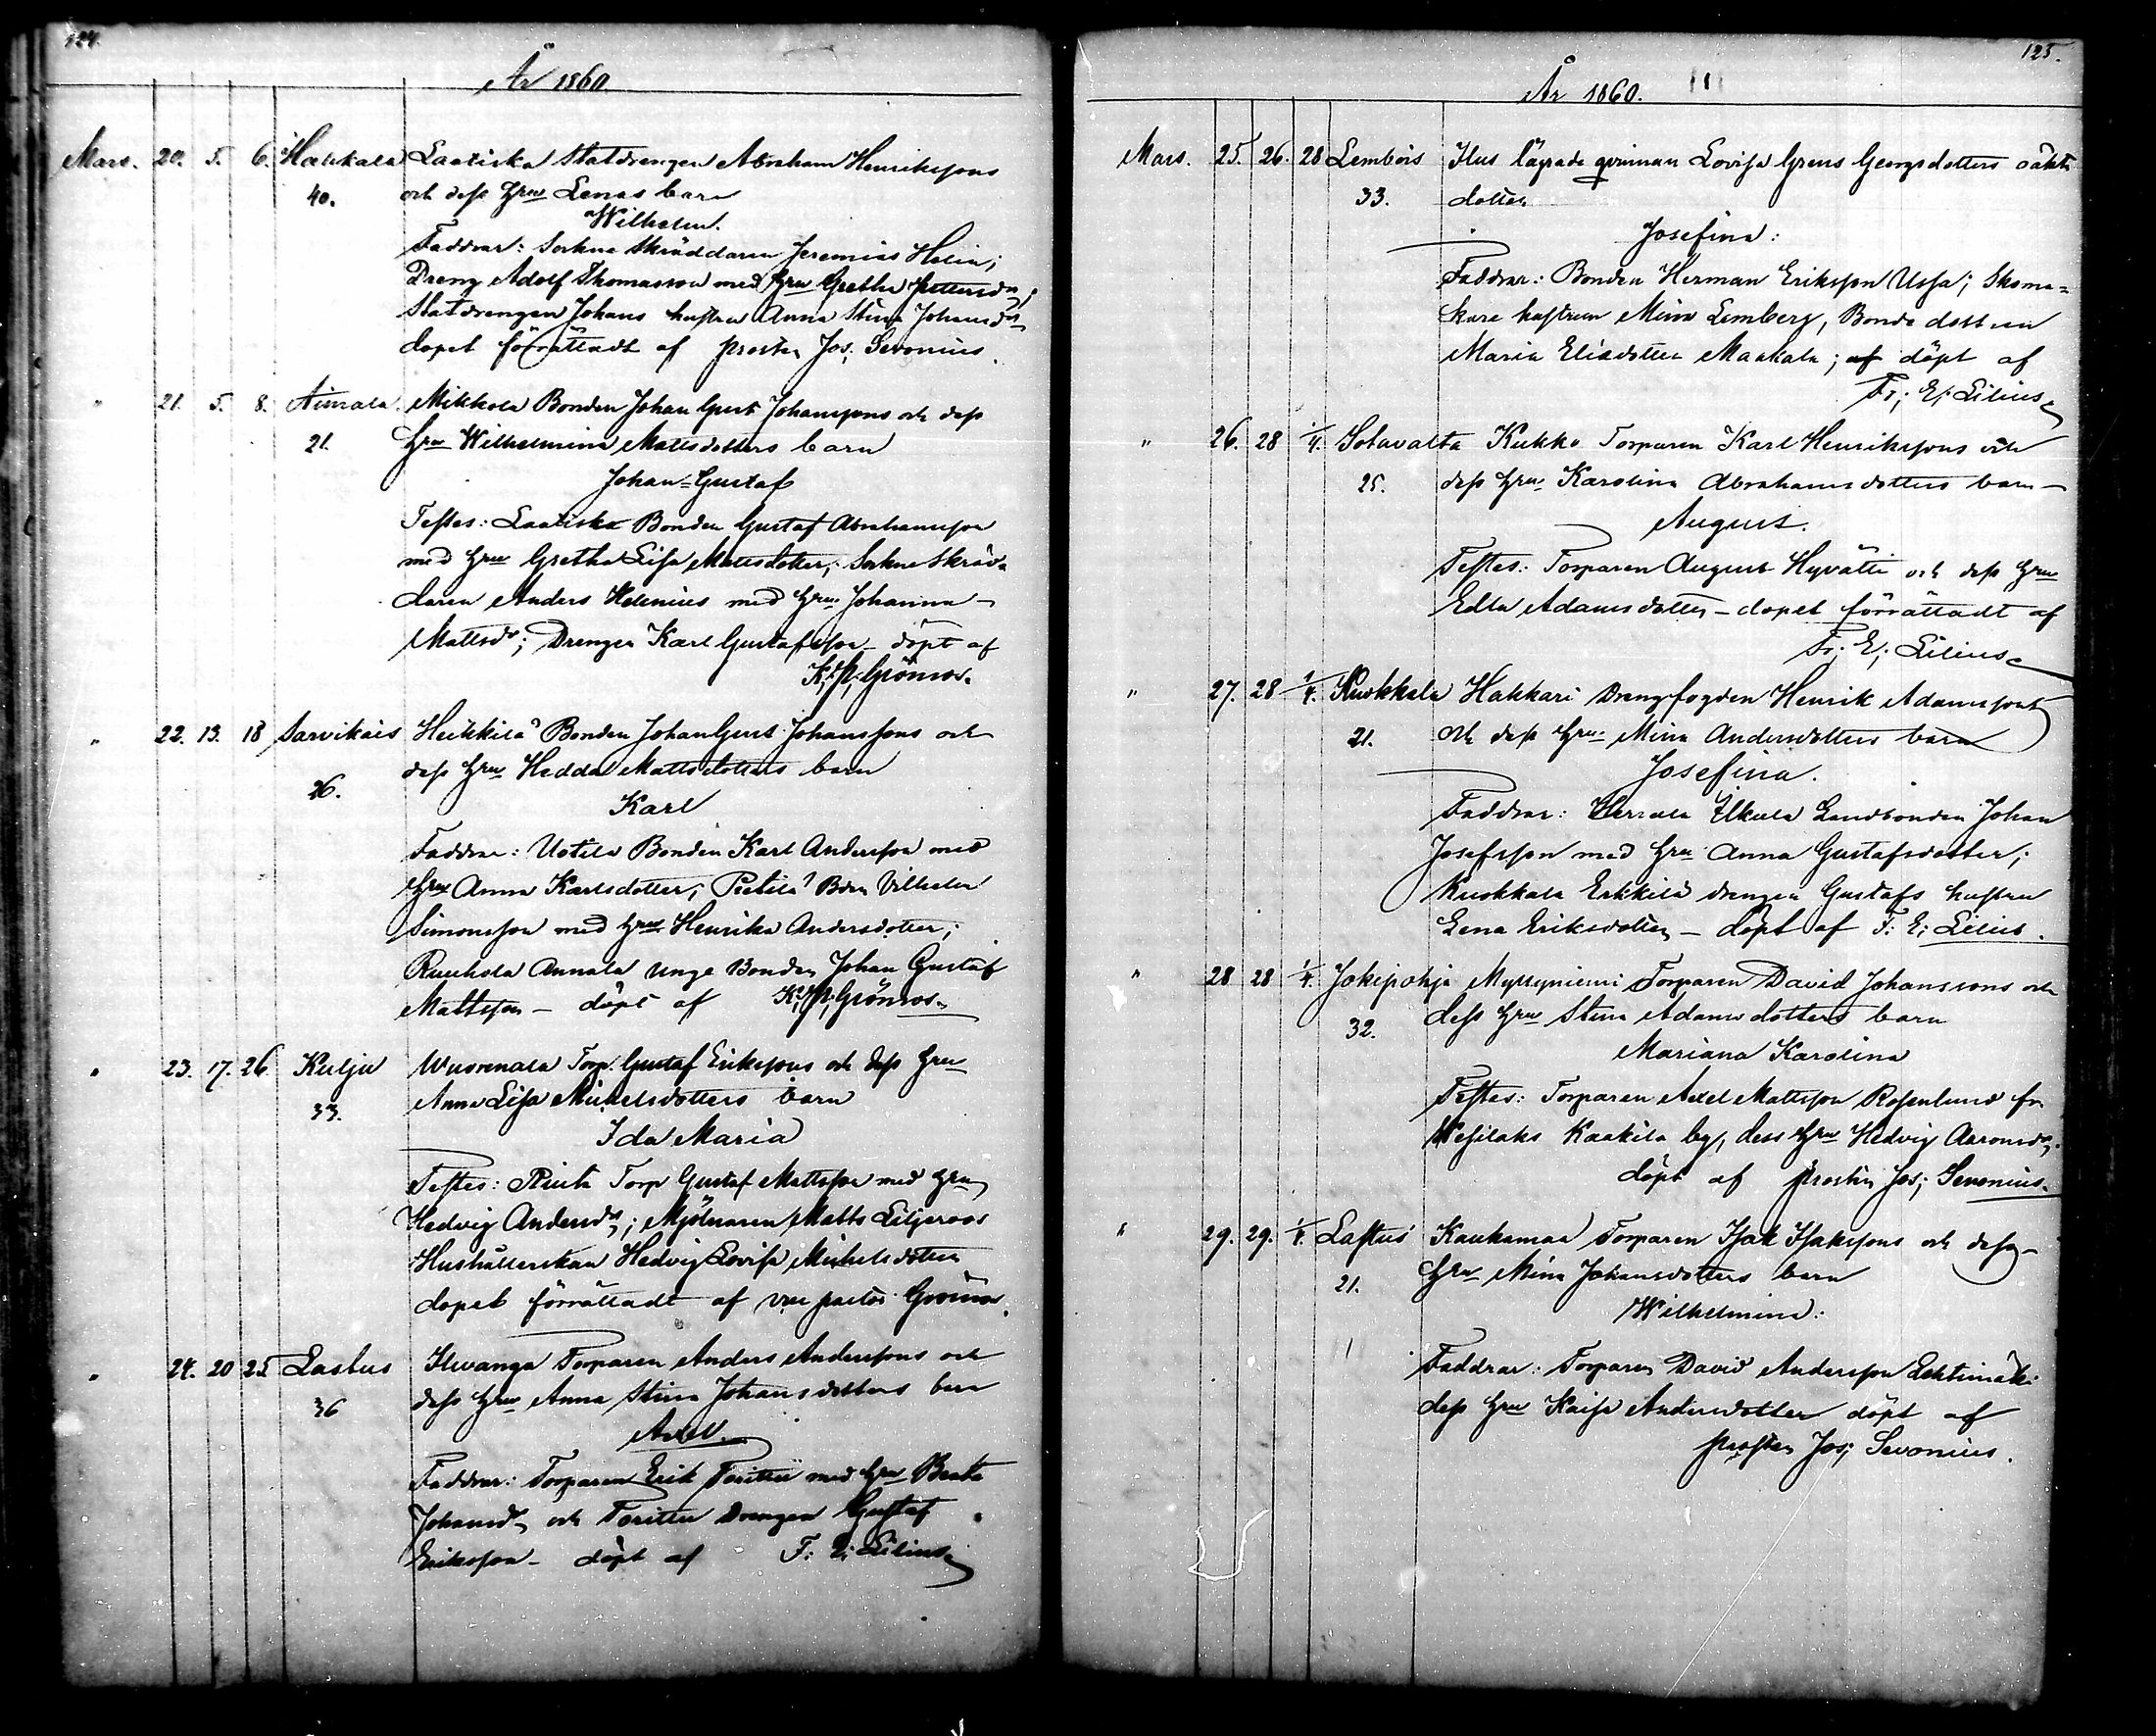 124.
År 1860
Mars. 20. 5. 6. Hakkala Laatiska Statdrengen Abraham Henrikssons
40. och dess Hru Lenas barn
Wilhelm.
Faddrar: Sockne Skräddaren Jeremias Helin;
Dreng Adolf Thomasson med Hru Gretha
Statdrengen Johans hustru Anna Stina Johansdr
dopet förrättadt af Prosten Jos; Sevonius.
" 21. 5. 8. Aimala. Mikkola Bonden Johan Gust Johanssons och dess
21. Hru Wilhelmina Mattsdotters barn
Johan=Gustaf
Testes: Laatiska Bonden Gustaf Abrahamsson
med Hru Gretha Lisa Mattsdotter; Sockne Skräd-
daren Anders Helenius med Hru Johanna
Mattsdr; Drengen Karl Gustafsson – döpt af
K; Grönroos.
" 22. 13. 18 Sarvikais Heikkilä Bonden Johan Gust Johanssons och
dess Hru Hedda Mattsdotters barn
26.
Karl
Faddrar: Uotila Bonden Karl Andersson med
Hru Anna Karlsdotter; Pietilä Bden Vilhelm
Simonsson med Hru Henrika Andersdotter;
Annala unge Bonden Johan Gustaf
Mattsson – döpt af K; Grönroos.
" 23. 17. 26. Kulju Wuorenala Torp. Gustaf Erikssons och dess Hru
33. Anna Lisa Michelsdotters barn
Ida Maria
Testes: Torp Gustaf Mattsson med Hru
Hedvig Andersdr; Mjölnaren Matts Liljeroos
Hushållerskan Hedvig Lovisa Michelsdotter
dopet förrättadt af vice pastor Grönroos.
" 24. 20 25 Lastus Torparen Anders Anderssons och
36 dess Hru Anna Stina Johansdotters barn
Axel.
Faddrar: Torparen Erik med Hru Beata
Johansdr och Drengen Gustaf
Eriksson – döpt af F: E; Lilius
125.
År 1860.
Mars. 25. 26. 28 Lembois Ilus lägrade qvinnan Lovisa Grens Georgsdotters oäkta
33. dotter
Josefina:
Faddrar: Bonden Herman Eriksson Ussa; Skoma=
kare hustrun Mina Lemberg, Bonde dottren
Maria Eliaedotter Maakala; af döpt af
Fr; E; Lilius
" 26. 28 1/4. Sotavalta Kukko Torparen Karl Henrikssons och
25. dess Hru Karolina Abrahamsdotters barn
August.
Testes: Torparen August Hyvätti och dess Hru
Edla Adamsdotter – dopet förrättadt af
Fr; E; Lilius
" 27. 28 1/4. Kuokkala Hakkari Drengfogden Henrik Adamssons
21. och dess Hru Mina Andersdotters barn
Josefina.
Faddrar: Herrala Landbonden Johan
Josefsson med Hru Anna Gustafsdotter;
Kuokkala Erkkilä drengen Gustafs hustru
Lena Eriksdotter – döpt af F: E; Lilius.
" 28 28 1/4. Jokipohja Myllyniemi Torparen David Johanssons och
32. dess Hru Stina Adamsdotters barn
Mariana Karolina
Testes: Torparen Axel Mattsson Rosenlund fr
Wesilaks Kaakila by, dess Hru Hedvig Aaronsdr;
döpt af Prosten Jos; Sevonius.
" 29. 29. 1/4. Lastus Kaukamaa Torparen Isak Isakssons och dess
21. Hru Mina Johansdotters barn
Wilhelmina:
Faddrar: Torparen David Andersson Lehtimäki
dess Hru Kaisa Andersdotter döpt af
prosten Jos; Sevonius.